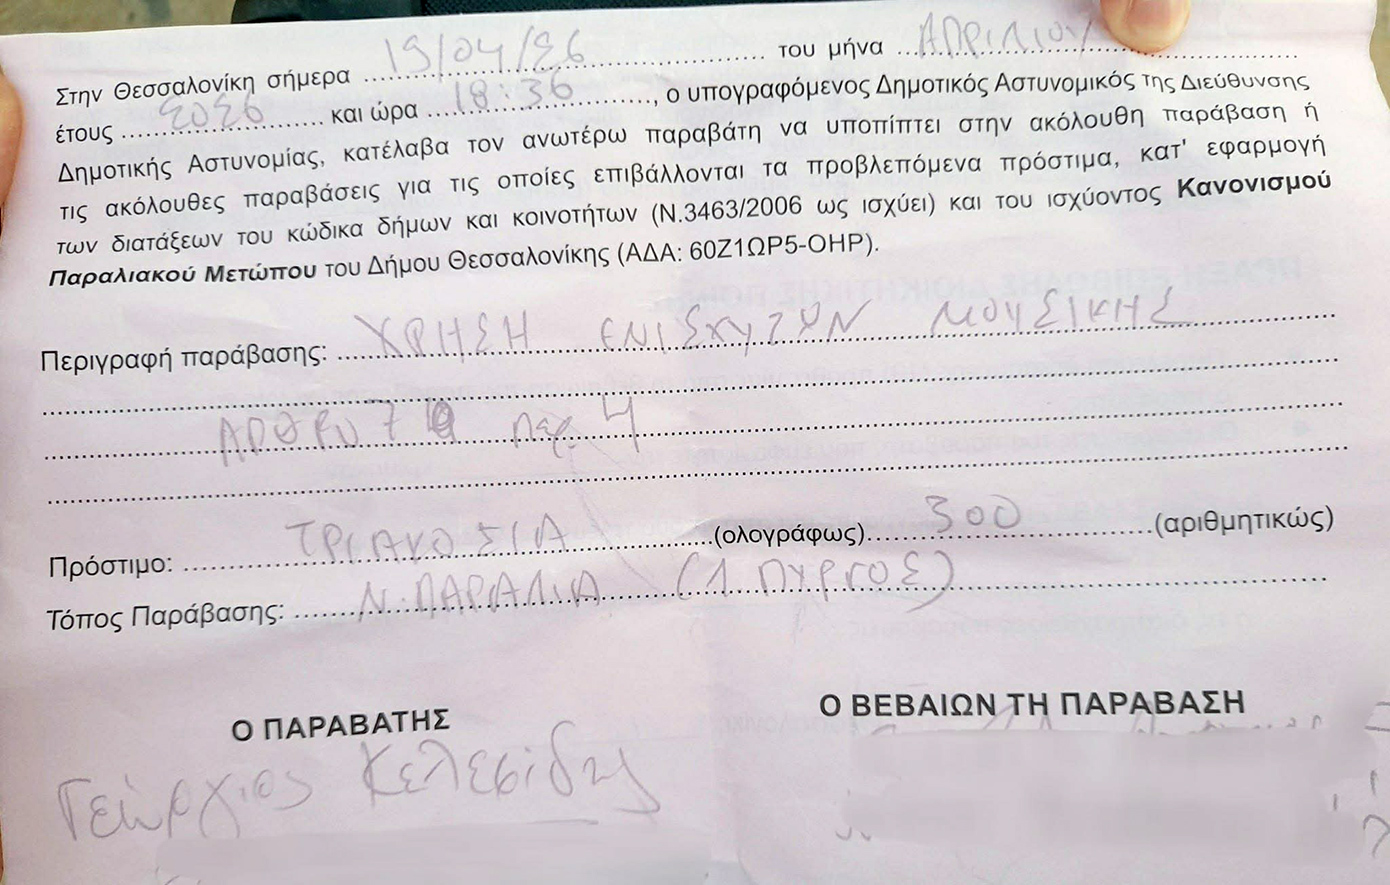 Στην Θεσσαλονίκη σήμερα 19/04/26 του μήνα ΑΠΡΙΛΙΟΥ
έτους 2026 και ώρα 18:36, ο υπογραφόμενος Δημοτικός Αστυνομικός της Διεύθυνσης
Δημοτικής Αστυνομίας, κατέλαβα τον ανωτέρω παραβάτη να υποπίπτει στην ακόλουθη παράβαση ή
τις ακόλουθες παραβάσεις για τις οποίες επιβάλλονται τα προβλεπόμενα πρόστιμα, κατ' εφαρμογή
των διατάξεων του κώδικα δήμων και κοινοτήτων (Ν.3463/2006 ως ισχύει) και του ισχύοντος Κανονισμού
Παραλιακού Μετώπου του Δήμου Θεσσαλονίκης (ΑΔΑ: 60Ζ1ΩΡ5-ΟΗΡ).
Περιγραφή παράβασης: ΧΡΗΣΗ ΕΝΙΣΧΥΤΩΝ ΜΟΥΣΙΚΗΣ
ΑΡΘΡΟ 7 παρ. 4
Πρόστιμο: ΤΡΙΑΚΟΣΙΑ (ολογράφως) 300 (αριθμητικώς)
Τόπος Παράβασης: Ν. ΠΑΡΑΛΙΑ (Λ. ΠΥΡΓΟΣ)
Ο ΠΑΡΑΒΑΤΗΣ
Ο ΒΕΒΑΙΩΝ ΤΗ ΠΑΡΑΒΑΣΗ
Γεώργιος Κελεσίδης